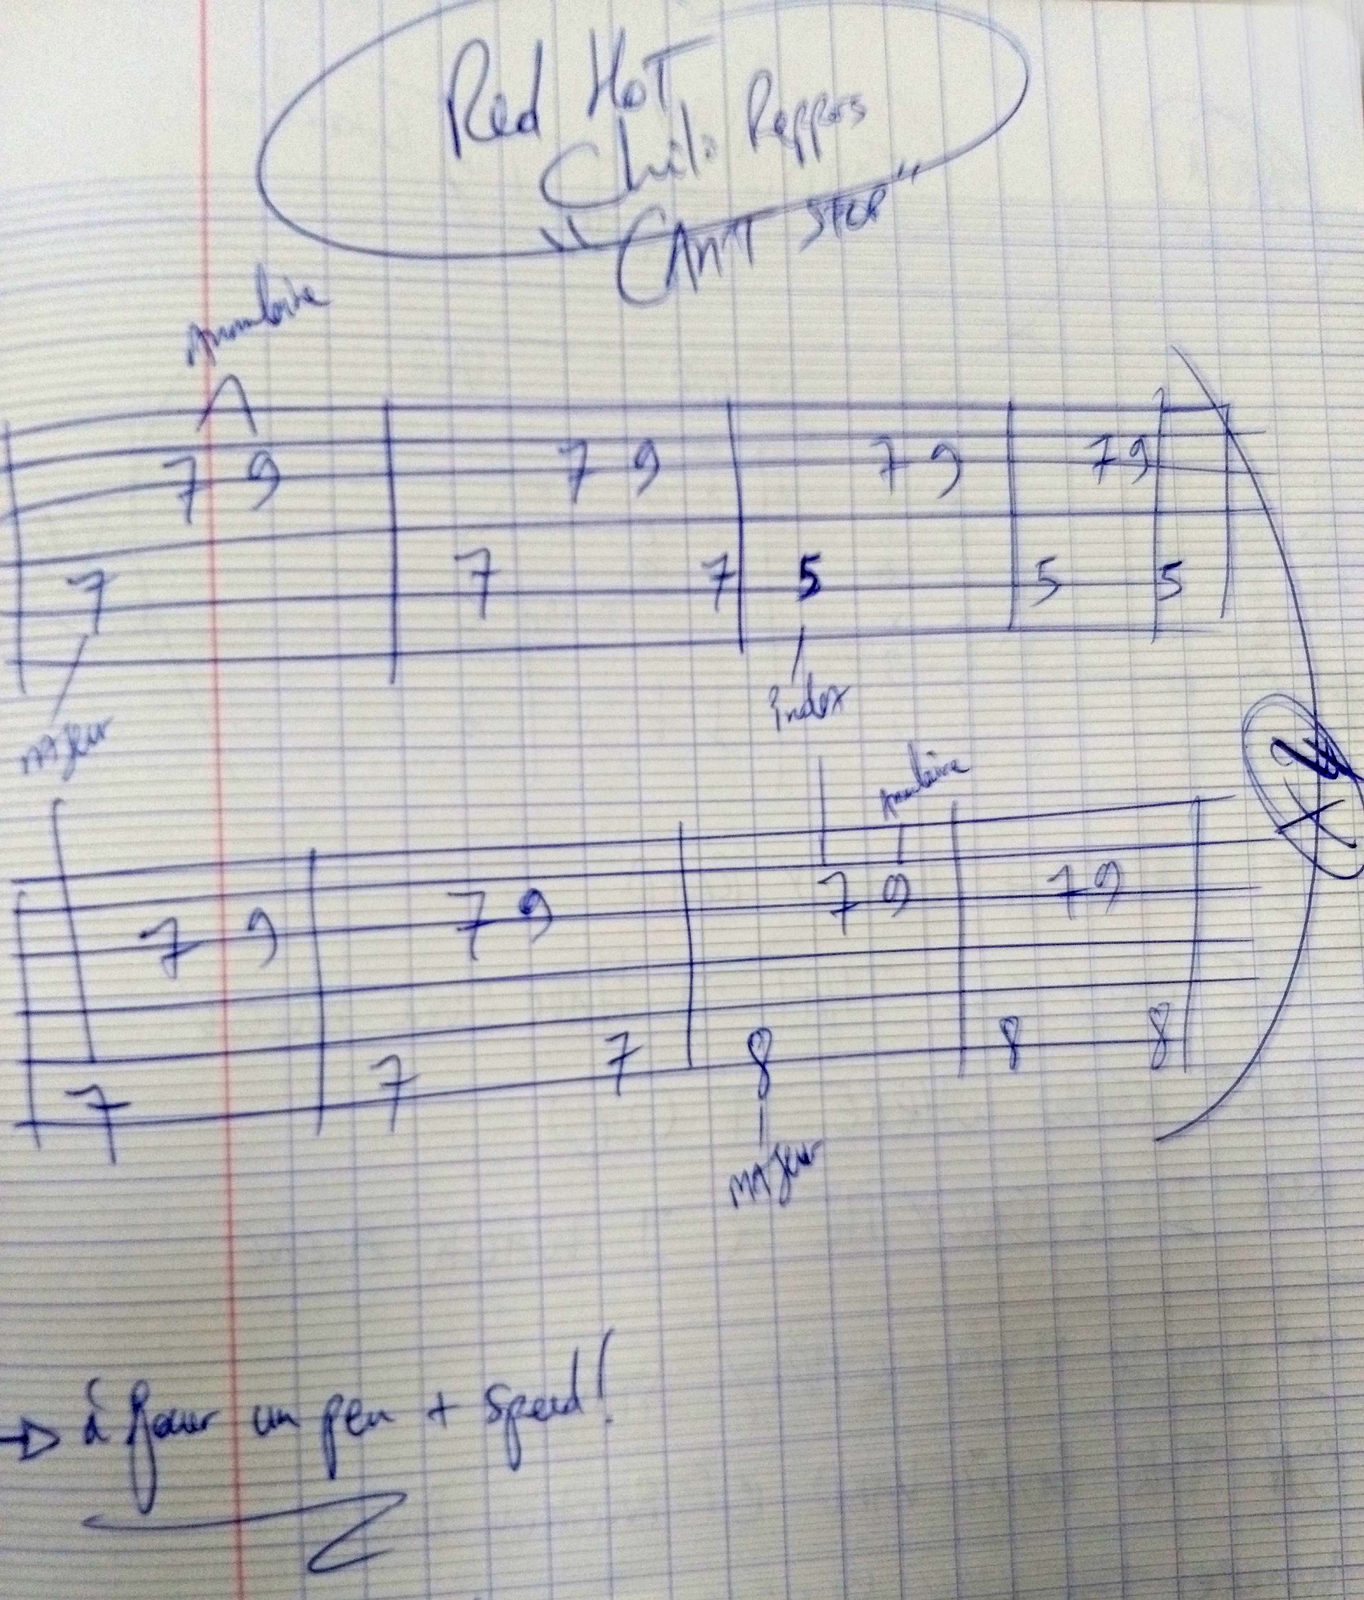 Red Hot
Chili Peppers
"CAn'T STOP"
Annulaire
7 9 7 9 7 9 7 9
7 7 7 5 5 5
MAJeur
index
Annulaire
7 9 7 9 7 9 7 9
7 7 7 8 8 8
MAJeur
à Jouer un peu + Speed!